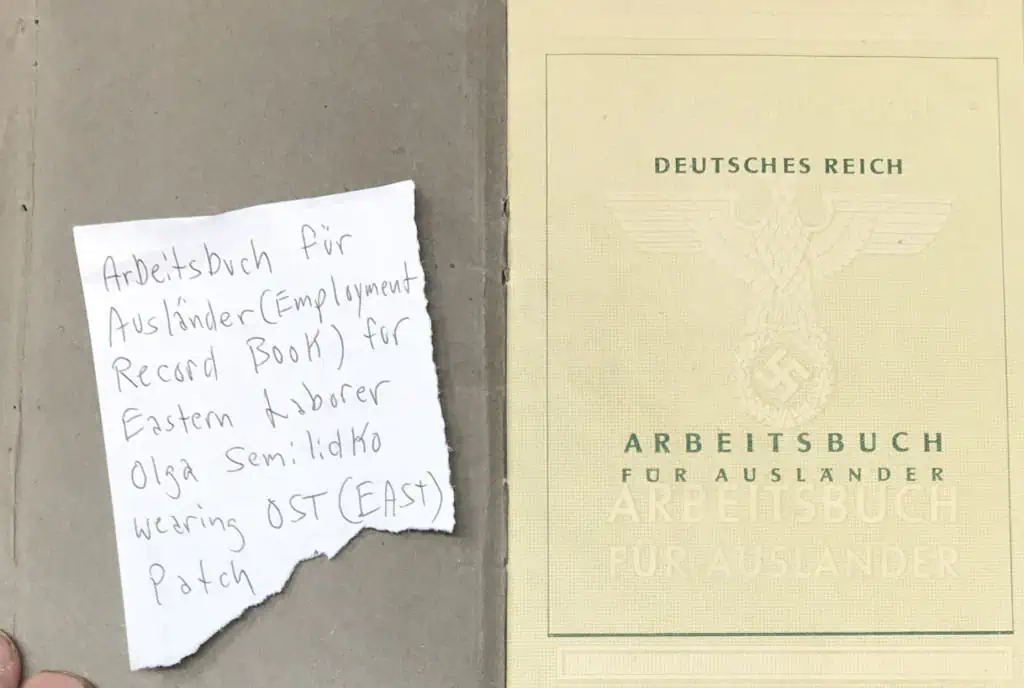 Arbeitsbuch für
Ausländer (Employment
Record Book) for
Eastern Laborer
Olga Semilidko
wearing OST (EAST)
Patch
DEUTSCHES REICH
ARBEITSBUCH
FÜR AUSLÄNDER
ARBEITSBUCH
FÜR AUSLÄNDER